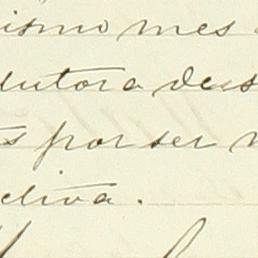 ismo mes
dutora des
s por ser
ctiva.